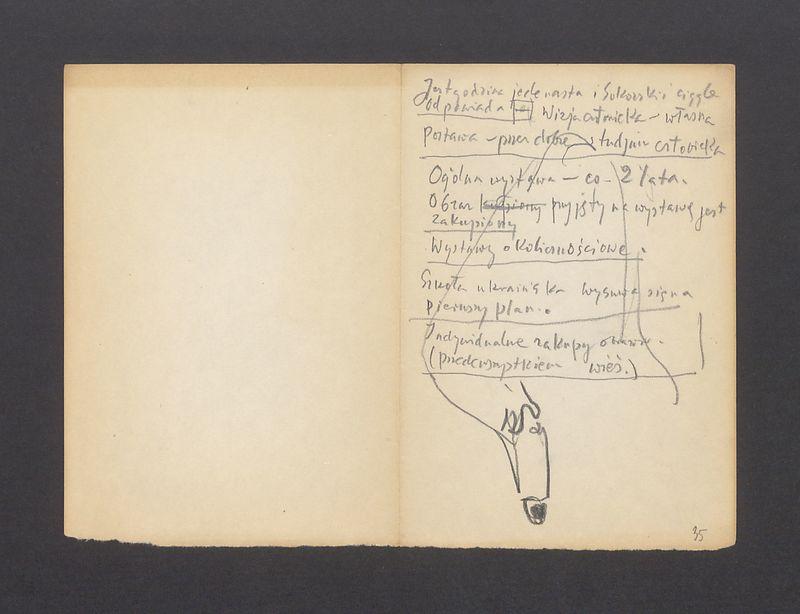 Jest godzina jedenasta i Sokorski ciągle
odpowiada Wizja człowieka – własna
Postawa – przez dobre studjum człowieka
Ogólna wystawa – co – 2 lata.
Obraz przyjęty na wystawę jest
zakupiony
Wystawy okolicznościowe.
Szkoła ukraińska wysuwa się na
pierwszy plan.
Indywidualne zakupy obrazów.
(przedewszystkiem wieś.)
35